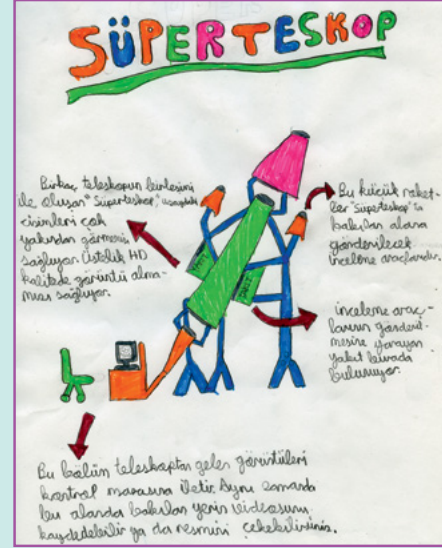 SÜPERTESKOP
Birkaç teleskopun birleşimi
ile oluşan "Süperteskop", uzaydaki
cisimleri çok
yakından görmemizi
sağlıyor. Üstelik HD
kalitede görüntü alma-
mızı sağlıyor.
Bu küçük roket-
ler "Süperteskop"ta
bakılan alana
gönderilecek
inceleme araçlarıdır.
YAKIT
YAKIT
inceleme araç-
larının gönderil-
mesine yarayan
yakıt burada
bulunuyor.
Bu bölüm teleskoptan gelen görüntüleri
kontrol masasına iletir. Aynı zamanda
bu alanda bakılan yerin videosunu
kaydedebilir ya da resmini çekebilirsiniz.